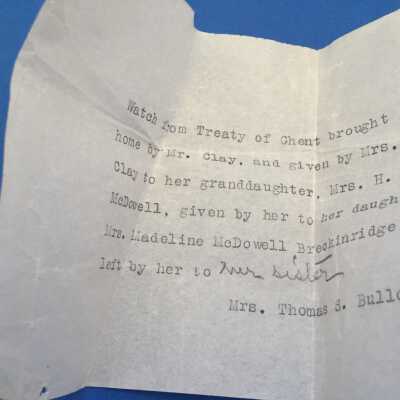 Watch from Treaty of Ghent brought
home by Mr. Clay, and given by Mrs.
Clay to her granddaughter, Mrs. H.
McDowell, given by her to her daugh
Mrs. Madeline McDowell Breckinridge
left by her to her sister
Mrs. Thomas S. Bullo